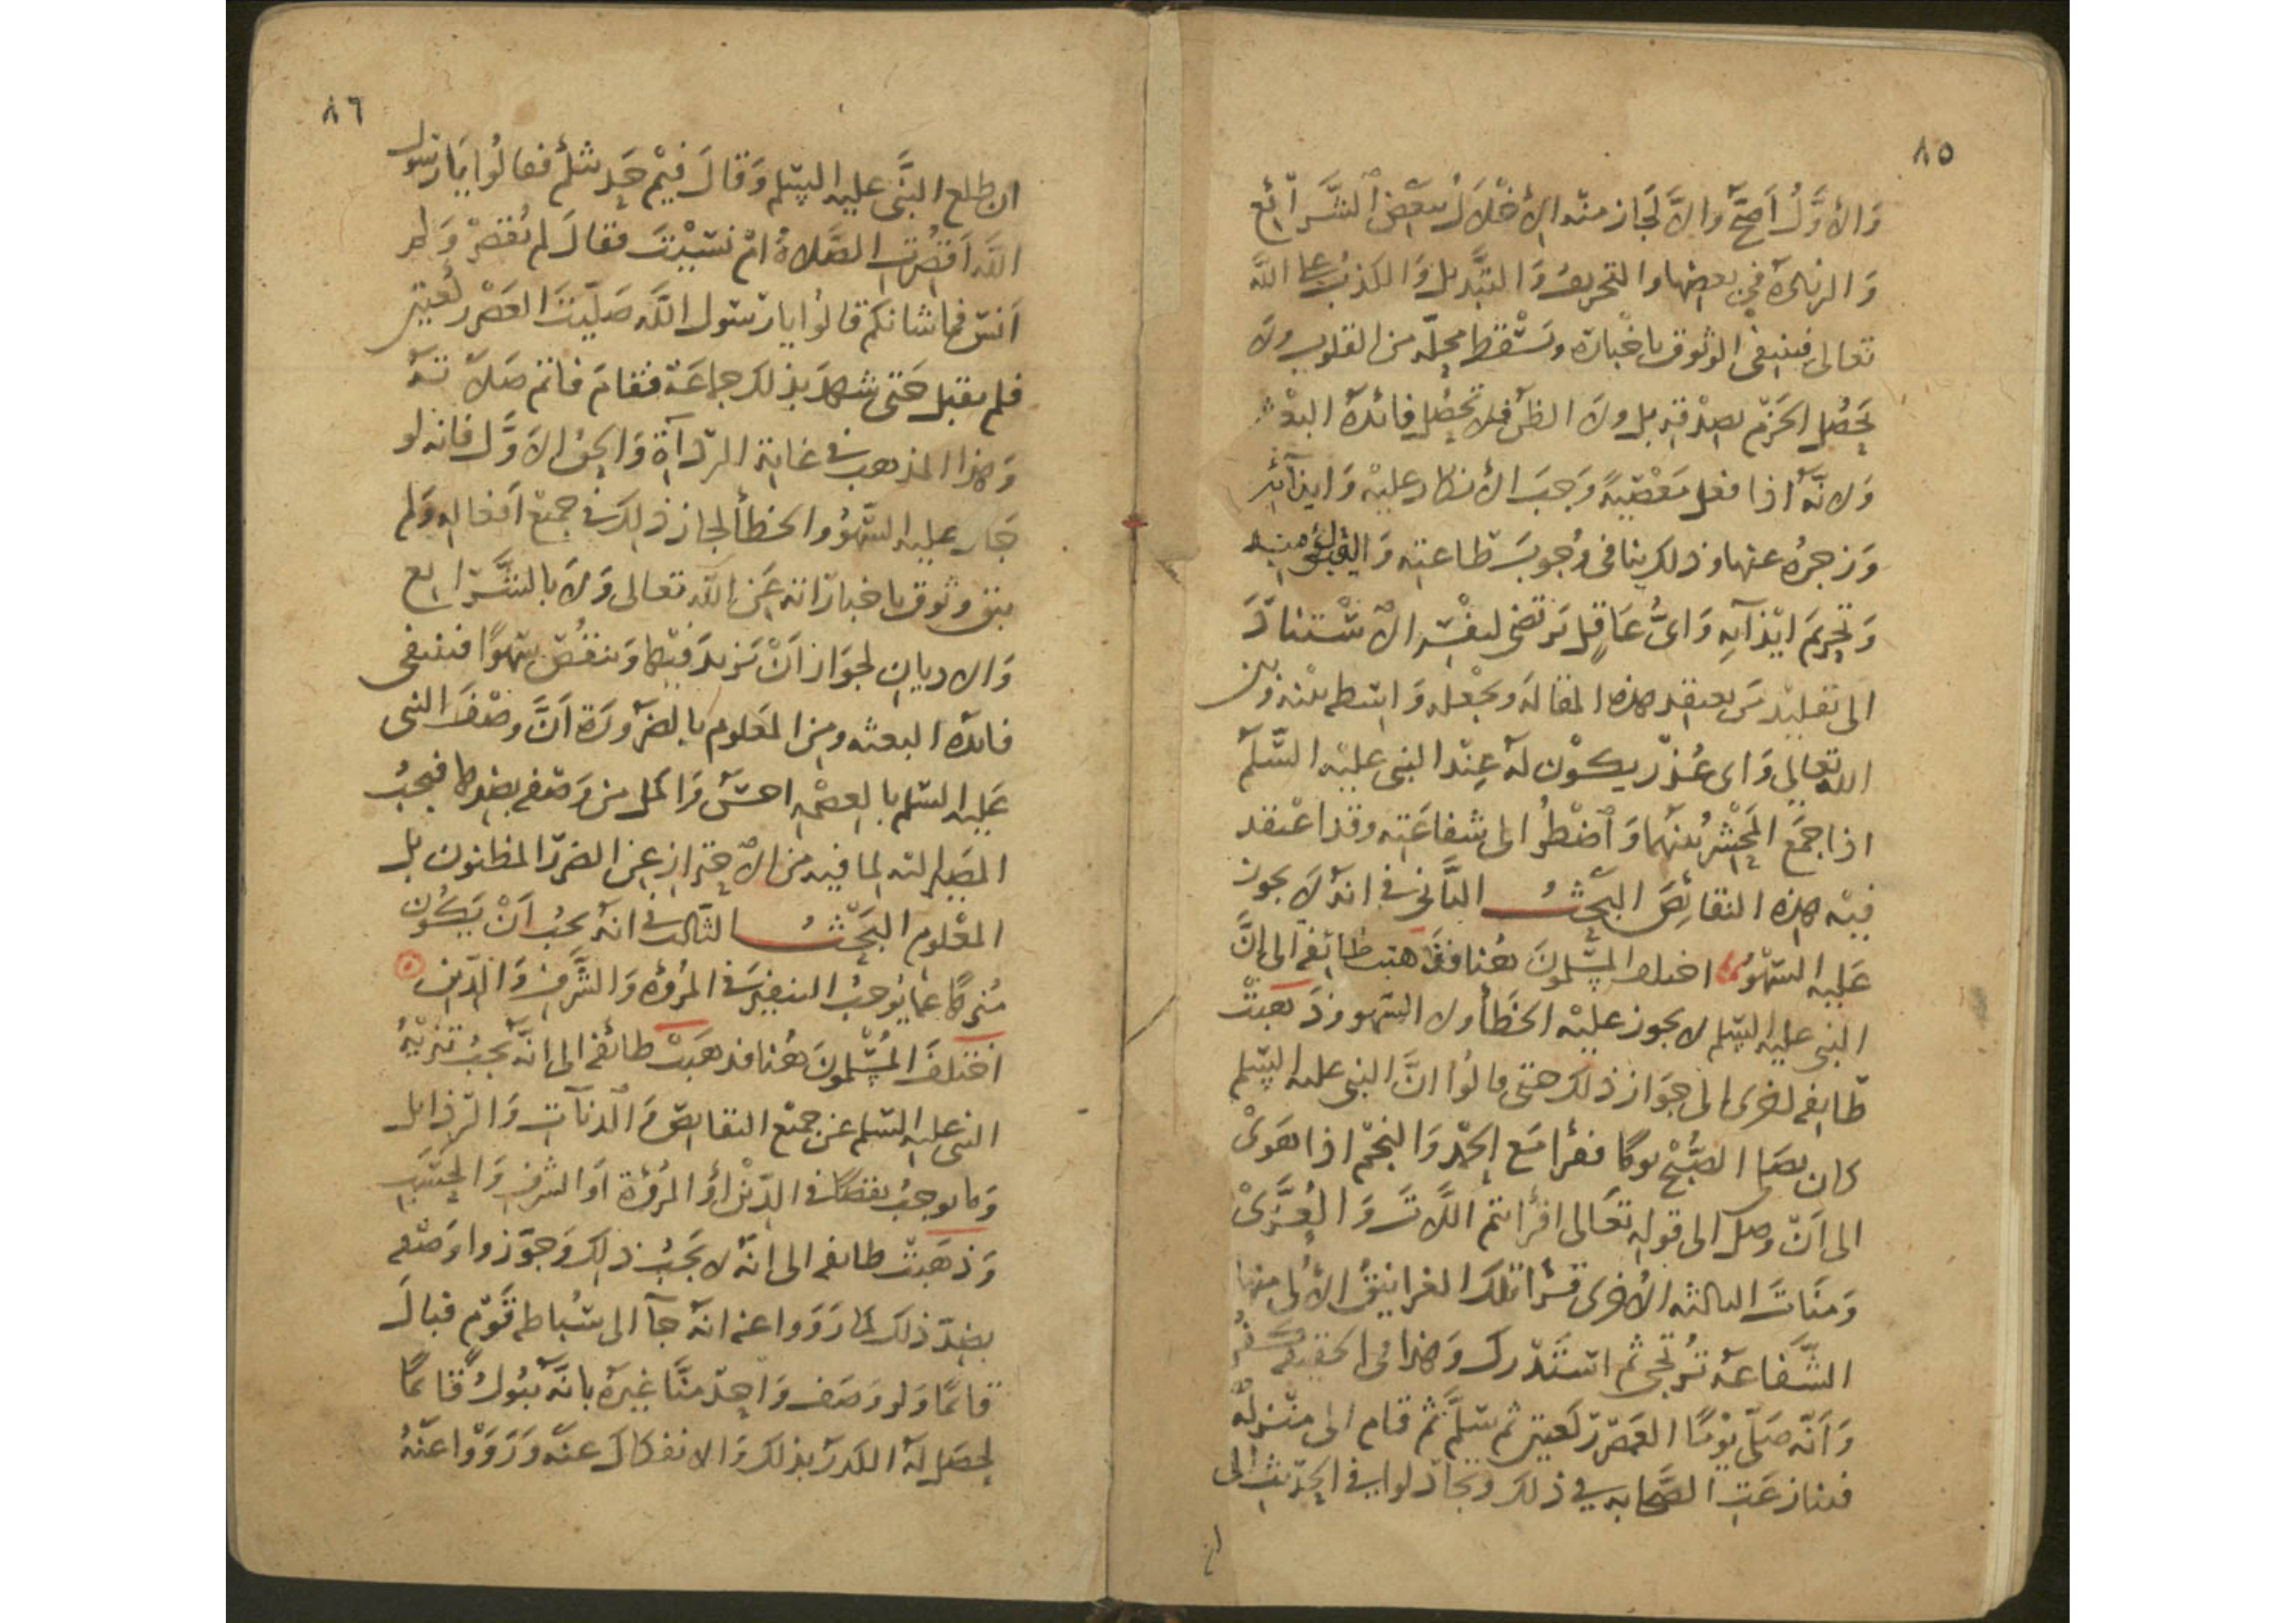 ٨٥
وَالأوَّلُ اَصَحُّ والاَّ لَجَاز منه الأخْلَالُ ببَعْضِ الشَّرَائع
وَالزيادة في بعضها والتحريفُ وَالتَّبْديل وَالكذبُ على اللّه
تعالى فينتفى الوثوق باخْباره ويَسْقط محلّه من القلوب ولا
يَحصُل الجَزم بصِدْقِه بل ولا الظن فلا تحصُل فائدة البعْثه
وَلانّه اذا فعل مَعْصيةً وَجبَ الأنكار عليْه وَايذائه
وَزجرُه عنها وذلك ينافى وُجوبَ طاعته
وَتحريمَ ايْذَآئِه وَاىُّ عَاقِل يَرتضى لنفْسه الاسْتنادَ
الى تقليْد مَن يعتقد هذه المقالة ويجْعله واسطه بينْه وَبين
اللّه تعالى وَاى عُذرٍ يكون له عِنْد النبى عليْه السَّلم
اذا جمَع المحْشر بينهما وَاضْطُر الى شفاعَته وقد اعْتقد
فيْه هذه النقائِصَ البَحْثُ الثَّانى في انه لا يجوز
عَليه السّهْوُ اختلف المسْلمونَ هُنا فذهبت طائفه الى انَّ
النبى عليه السّلم لا يجوز عليْه الخَطَأ ولا السّهو وذَهبَتْ
طَايفه اخرى الى جَوَاز ذلك حتى قالوُا انَّ النبى عليه السّلم
كان يصَلى الصُّبْح يومًا فقرأ مَع الحَمْد وَالنجْم اذا هَوىْ
الى اَنْ وصَل الى قولِه تعَالى افرأيتم اللّاتَ وَالعُزَّىْ
وَمنَاتَ الثالثه الأخرى قرْأ تلكَ الغرانيْقُ الأُلى منها
الشَّفاعَة تُرتجى ثم استَدْرك وَهذا فى الحقيقه كفر
وَاَنّه صَلّى يوْمًا العَصْر ركعتين ثم سَلَّمَ ثم قام الى منْزله
فتنازعَتِ الصَّحابه في ذلك وتجَادلوا في الحَديْث الى
ان
٨٦
ان طلع النَّبى عليه السّلم وَقالَ فيْم حَديثكم فقالُوا يَا رسول
اللَّه اَقَصُرتِ الصَّلاةُ امْ نسَيْتَ فقالَ لم تُقصَرْ وَلم
اَنسَ فما شانكم قالُوا يا رسُول اللَّه صَليْتَ العَصْر ركعتين
فلم يقبل حَتى شهدَ بذلك جماعَة فقامَ فاتم صَلاته
وَهذا المذهب في غايَة الرّدآة وَالحق الاَوَّل فانه لو
جَاز عليه السّهْوُ والخطأ لجاز ذلِك في جميْع اَفعاله وَلم
يبَق وثوق باخباراته عَن اللّه تعالى وَلا بالشَّرائع
وَالاديان لجوَاز اَنْ يَزيدَ فيْها وَينقُصَ سَهْوًا فينتفى
فائده البعثه ومن المعْلوم بالضرَورَة اَنَّ وصْفَ النبى
عَليه السّلم بالعصْمه احسَنُ وَاكمل من وَصْفه بضدها فيجبُ
المصَير اليه لما فيه من الاحتراز عن الضرَر المظنون بل
المعْلوم البَحْثُ الثالث في انه يجبُ اَنْ يَكُون
مُنزهًا عمّا يُوجبُ التنفير في المرُؤة وَالشَّرف وَالدّين
اختلفَ المُسْلمونَ هُنا فذهَبَتْ طائفه الى انّه يجبُ تنزيْهُ
النبى عليه السّلم عن جميْع النقايصَ وَالدناآت وَالرّذايل
وَما يوجبُ نقصًا في الدّيْن اَوْ المرُؤة اَو الشرف وَالحَسَب
وَذهَبَتْ طايفه الى انّه لا يجَبُ ذلِك وَجوّزوا وَصْفه
بضدّ ذلك كما رَوَوا عنه انهُ جآ الى سُباطه قَوْم فبالَ
قائمًا وَلو وَصَف وَاحدٌ منَّا غيرَه بانَّه يَبوُلُ قائمًا
لحصَل له الكدر بذلك وَالانفكاك عنْه وَرَوَوْا عَنْهُ